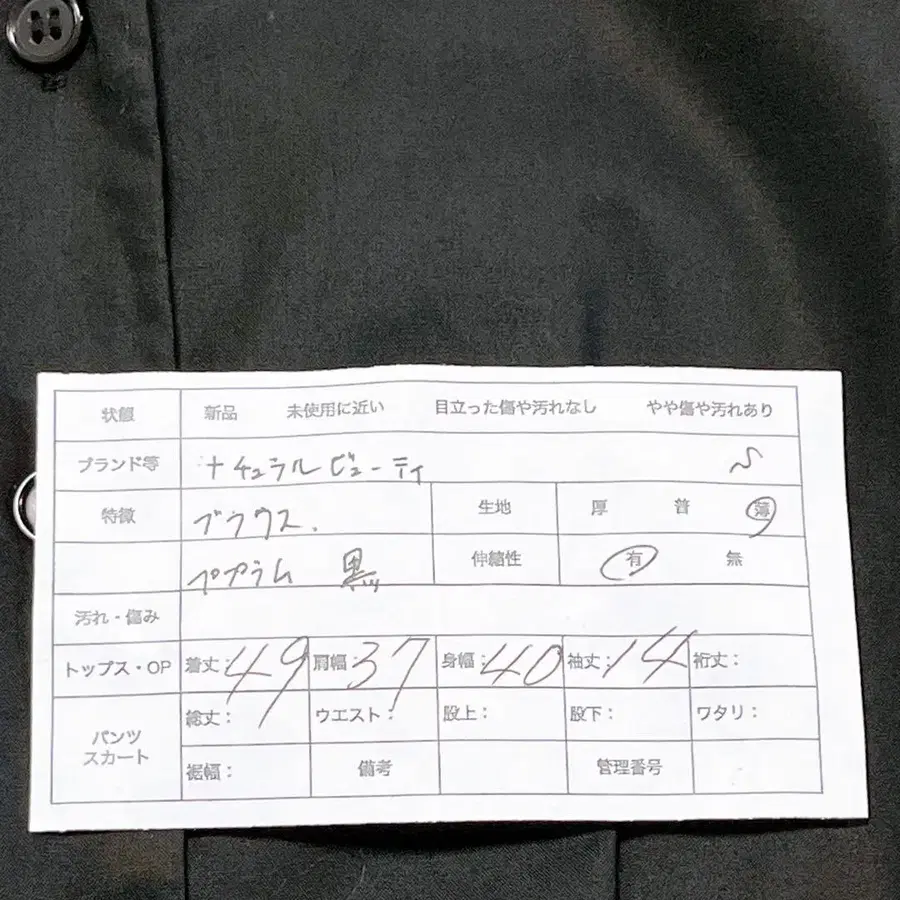 状態 新品 未使用に近い 目立った傷や汚れなし やや傷や汚れあり
ブランド等 ナチュラルビューティ S
特徴 ブラウス. 生地 厚 普 薄
ペプラム 黒 伸縮性 有 無
汚れ・傷み
トップス・OP 着丈:49 肩幅:37 身幅:40 袖丈:14 裄丈:
パンツ スカート 総丈: ウエスト: 股上: 股下: ワタリ:
裾幅: 備考 管理番号